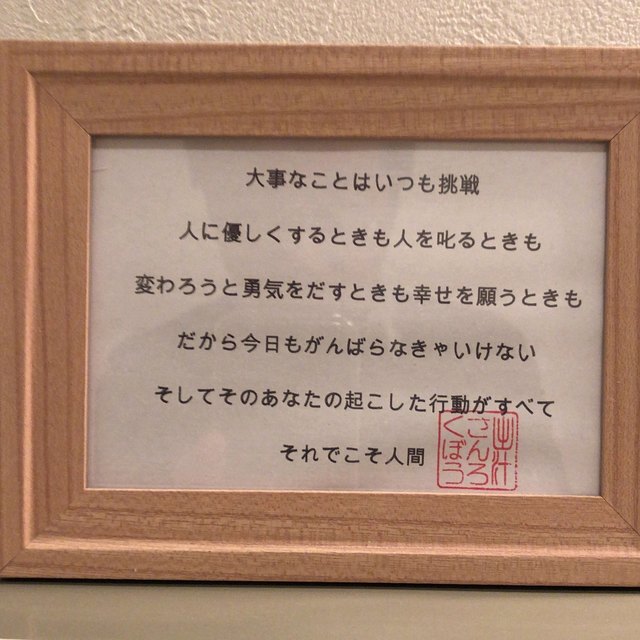 大事なことはいつも挑戦
人に優しくするときも人を叱るときも
変わろうと勇気をだすときも幸せを願うときも
だから今日もがんばらなきゃいけない
そしてそのあなたの起こした行動がすべて
それでこそ人間
出汁
ごんろ
くぼう